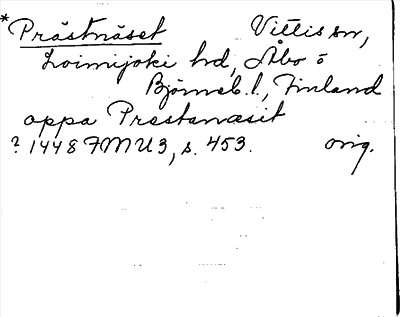 *Prästnäset Vittis sn,
Loimijoki hd, Åbo o
Björneb. l., Finland
oppa Prestanæsit
? 1448 FMU3, s. 453. orig.